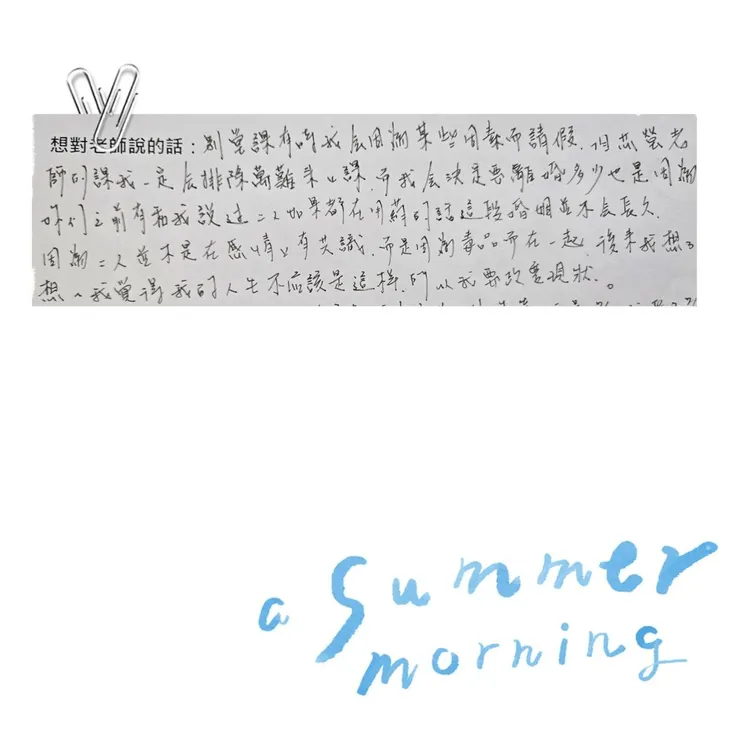 想對老師說的話：別堂課有時我会因為某些因素而請假，但蕊瑩老
師的課我一定会排除萬難來上課，而我会決定要離婚多少也是因為
妳们之前有和我說過二人如果都在用藥的話這段婚姻並不会長久，
因為二人並不是在感情上有共識，而是因為毒品而在一起，後來我想了
想，我覺得我的人生不應該是這樣，所以我要改變現狀。
a summer
morning